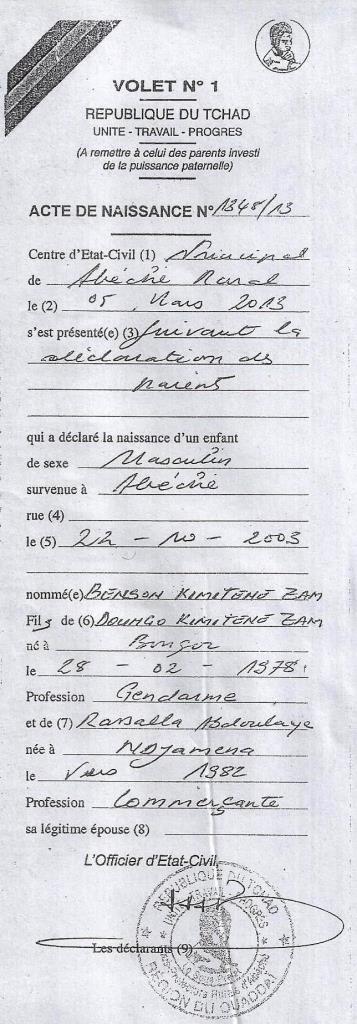 VOLET N° 1
REPUBLIQUE DU TCHAD
UNITE - TRAVAIL - PROGRES
(A remettre à celui des parents investi
de la puissance paternelle)
ACTE DE NAISSANCE N° 1348/13
Centre d'Etat-Civil (1) Principal
de Abéché Rural
le (2) 05 Mars 2013
s'est présenté(e) (3) suivant la
déclaration des
parents
qui a déclaré la naissance d'un enfant
de sexe Masculin
survenue à Abéché
rue (4)
le (5) 22 - 10 - 2003
nommé(e) BENSON KIMITENE ZAM
Fils de (6) DOUNGO KIMITENE ZAM
né à Bongor
le 28 - 02 - 1978
Profession Gendarme
et de (7) Abdoulaye
née à Ndjamena
le Vers 1982
Profession Commerçante
sa légitime épouse (8)
L'Officier d'Etat-Civil,
Les déclarants (9)
REPUBLIQUE DU TCHAD
UNITE TRAVAIL PROGRES
REGION DU OUADDAI